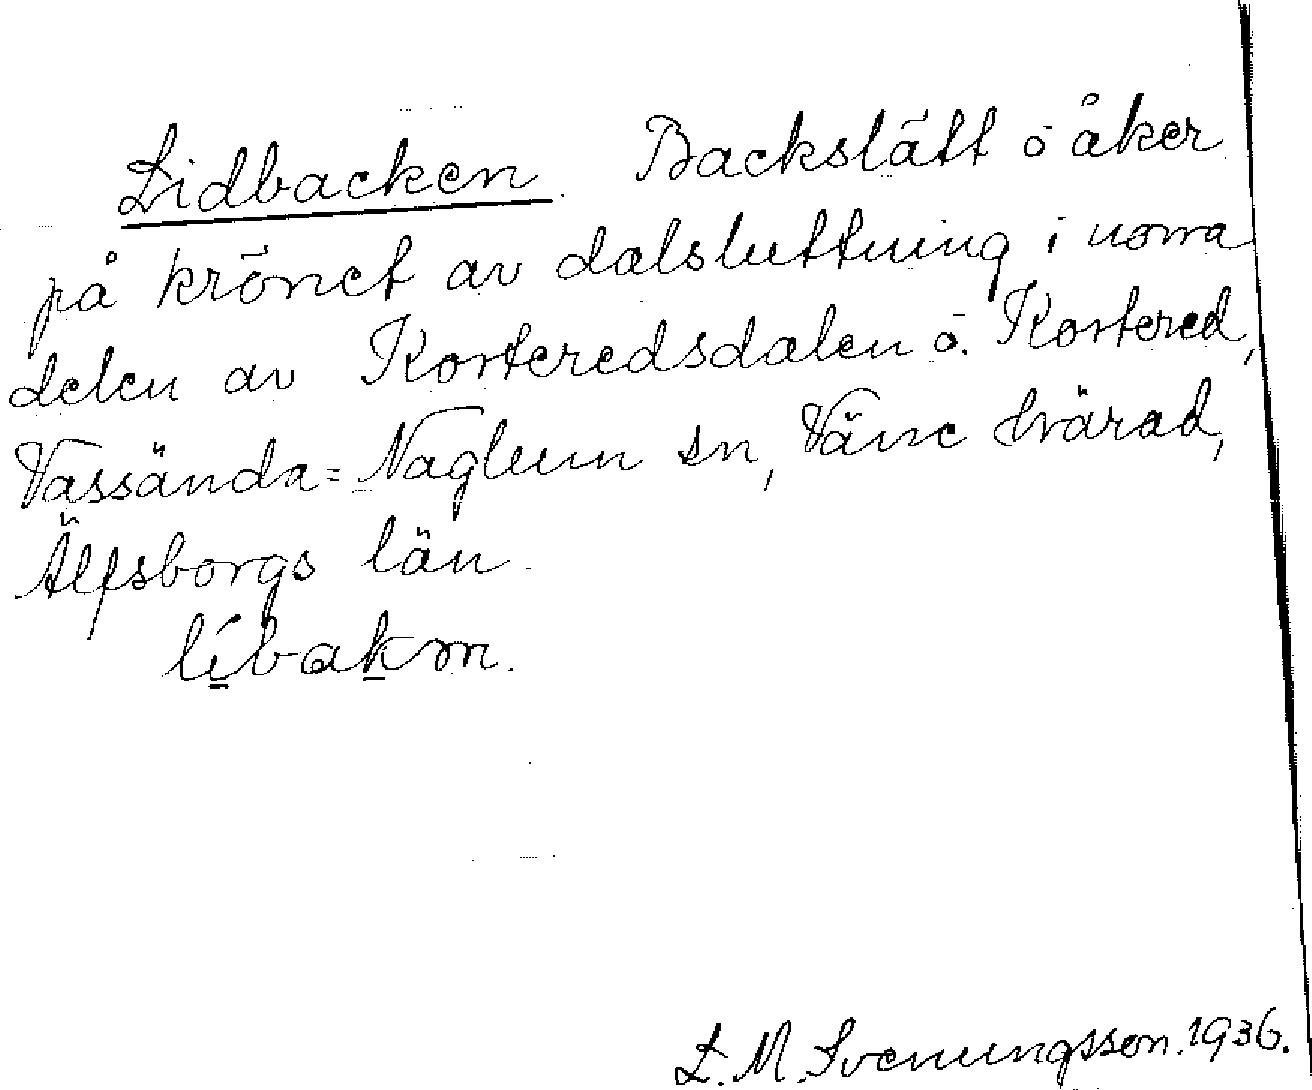 Lidbacken. Backslätt o åker
på krönet av dalsluttning i norra
delen av Korteredsdalen o. Kortered,
Vassända=Naglum sn, Väne härad,
Älfsborgs län.
líbakm.
L. M. Svenungsson. 1936.